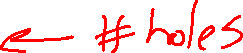 ← #holes